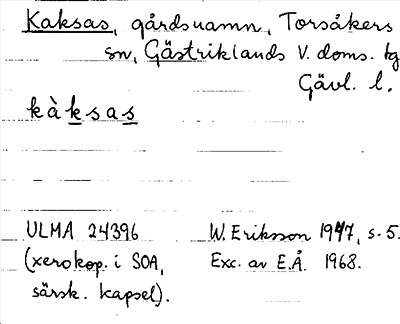 Kaksas, gårdsnamn, Torsåkers
sn, Gästriklands V. doms. tg
Gävl. l.
kàksas
ULMA 24396 W. Eriksson 1947, s. 5.
(xerokop. i SOA, Exc. av E.Å. 1968.
särsk. kapsel).